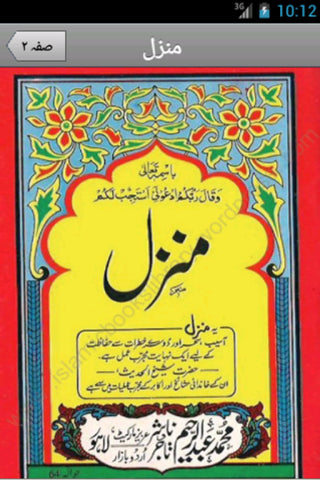 3G 10:12
صفہ ۲
منزل
باسمہ تعالیٰ
وَقَالَ رَبُّكُمُ ادْعُوْنِیْ اَسْتَجِبْ لَكُمْ
منزل
یہ منزل
آسیب، سحر اور دوسرے خطرات سے حفاظت
کے لیے ایک نہایت مجرب عمل ہے۔
حضرت شیخ الحدیث
ان کے خاندانی مشائخ اور اکابر کے مجرب عملیات میں سے ہے
محمد عبد الرحیم تاجر ناشر عزیز مارکیٹ، اردو بازار لاہور